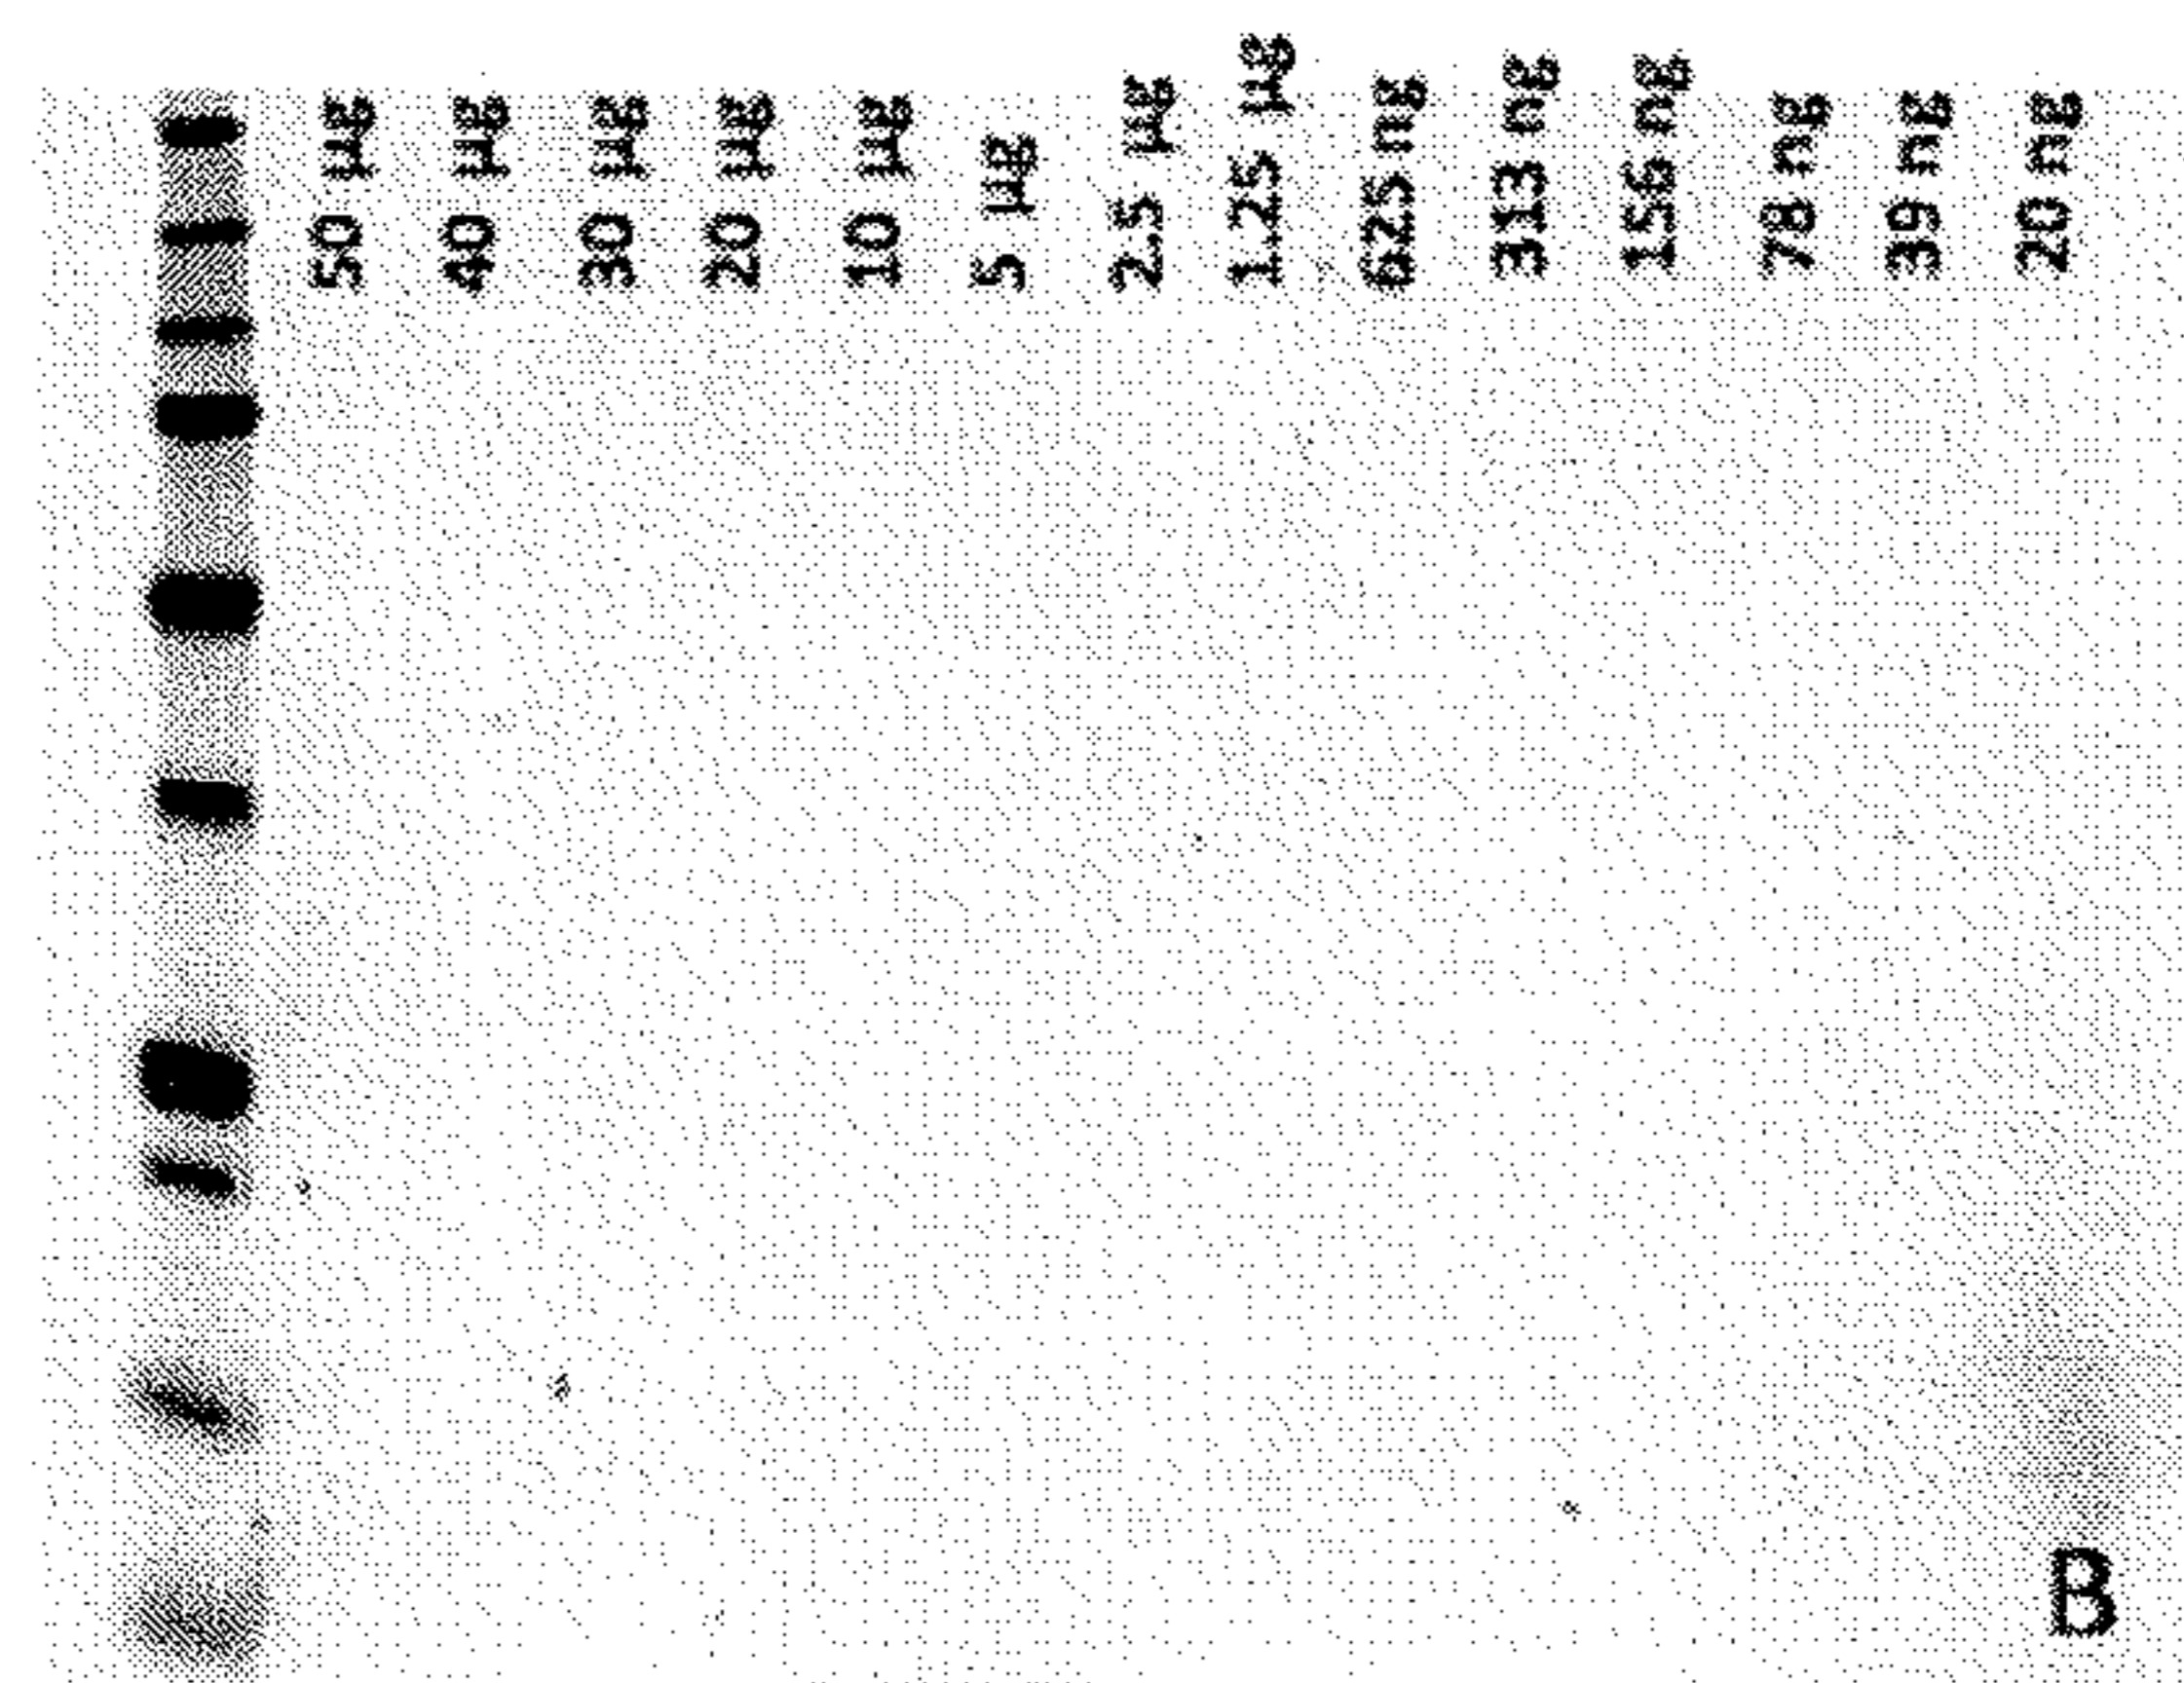 50 µg
40 µg
30 µg
20 µg
10 µg
5 µg
2.5 µg
1.25 µg
625 ng
313 ng
156 ng
78 ng
39 ng
20 ng
B